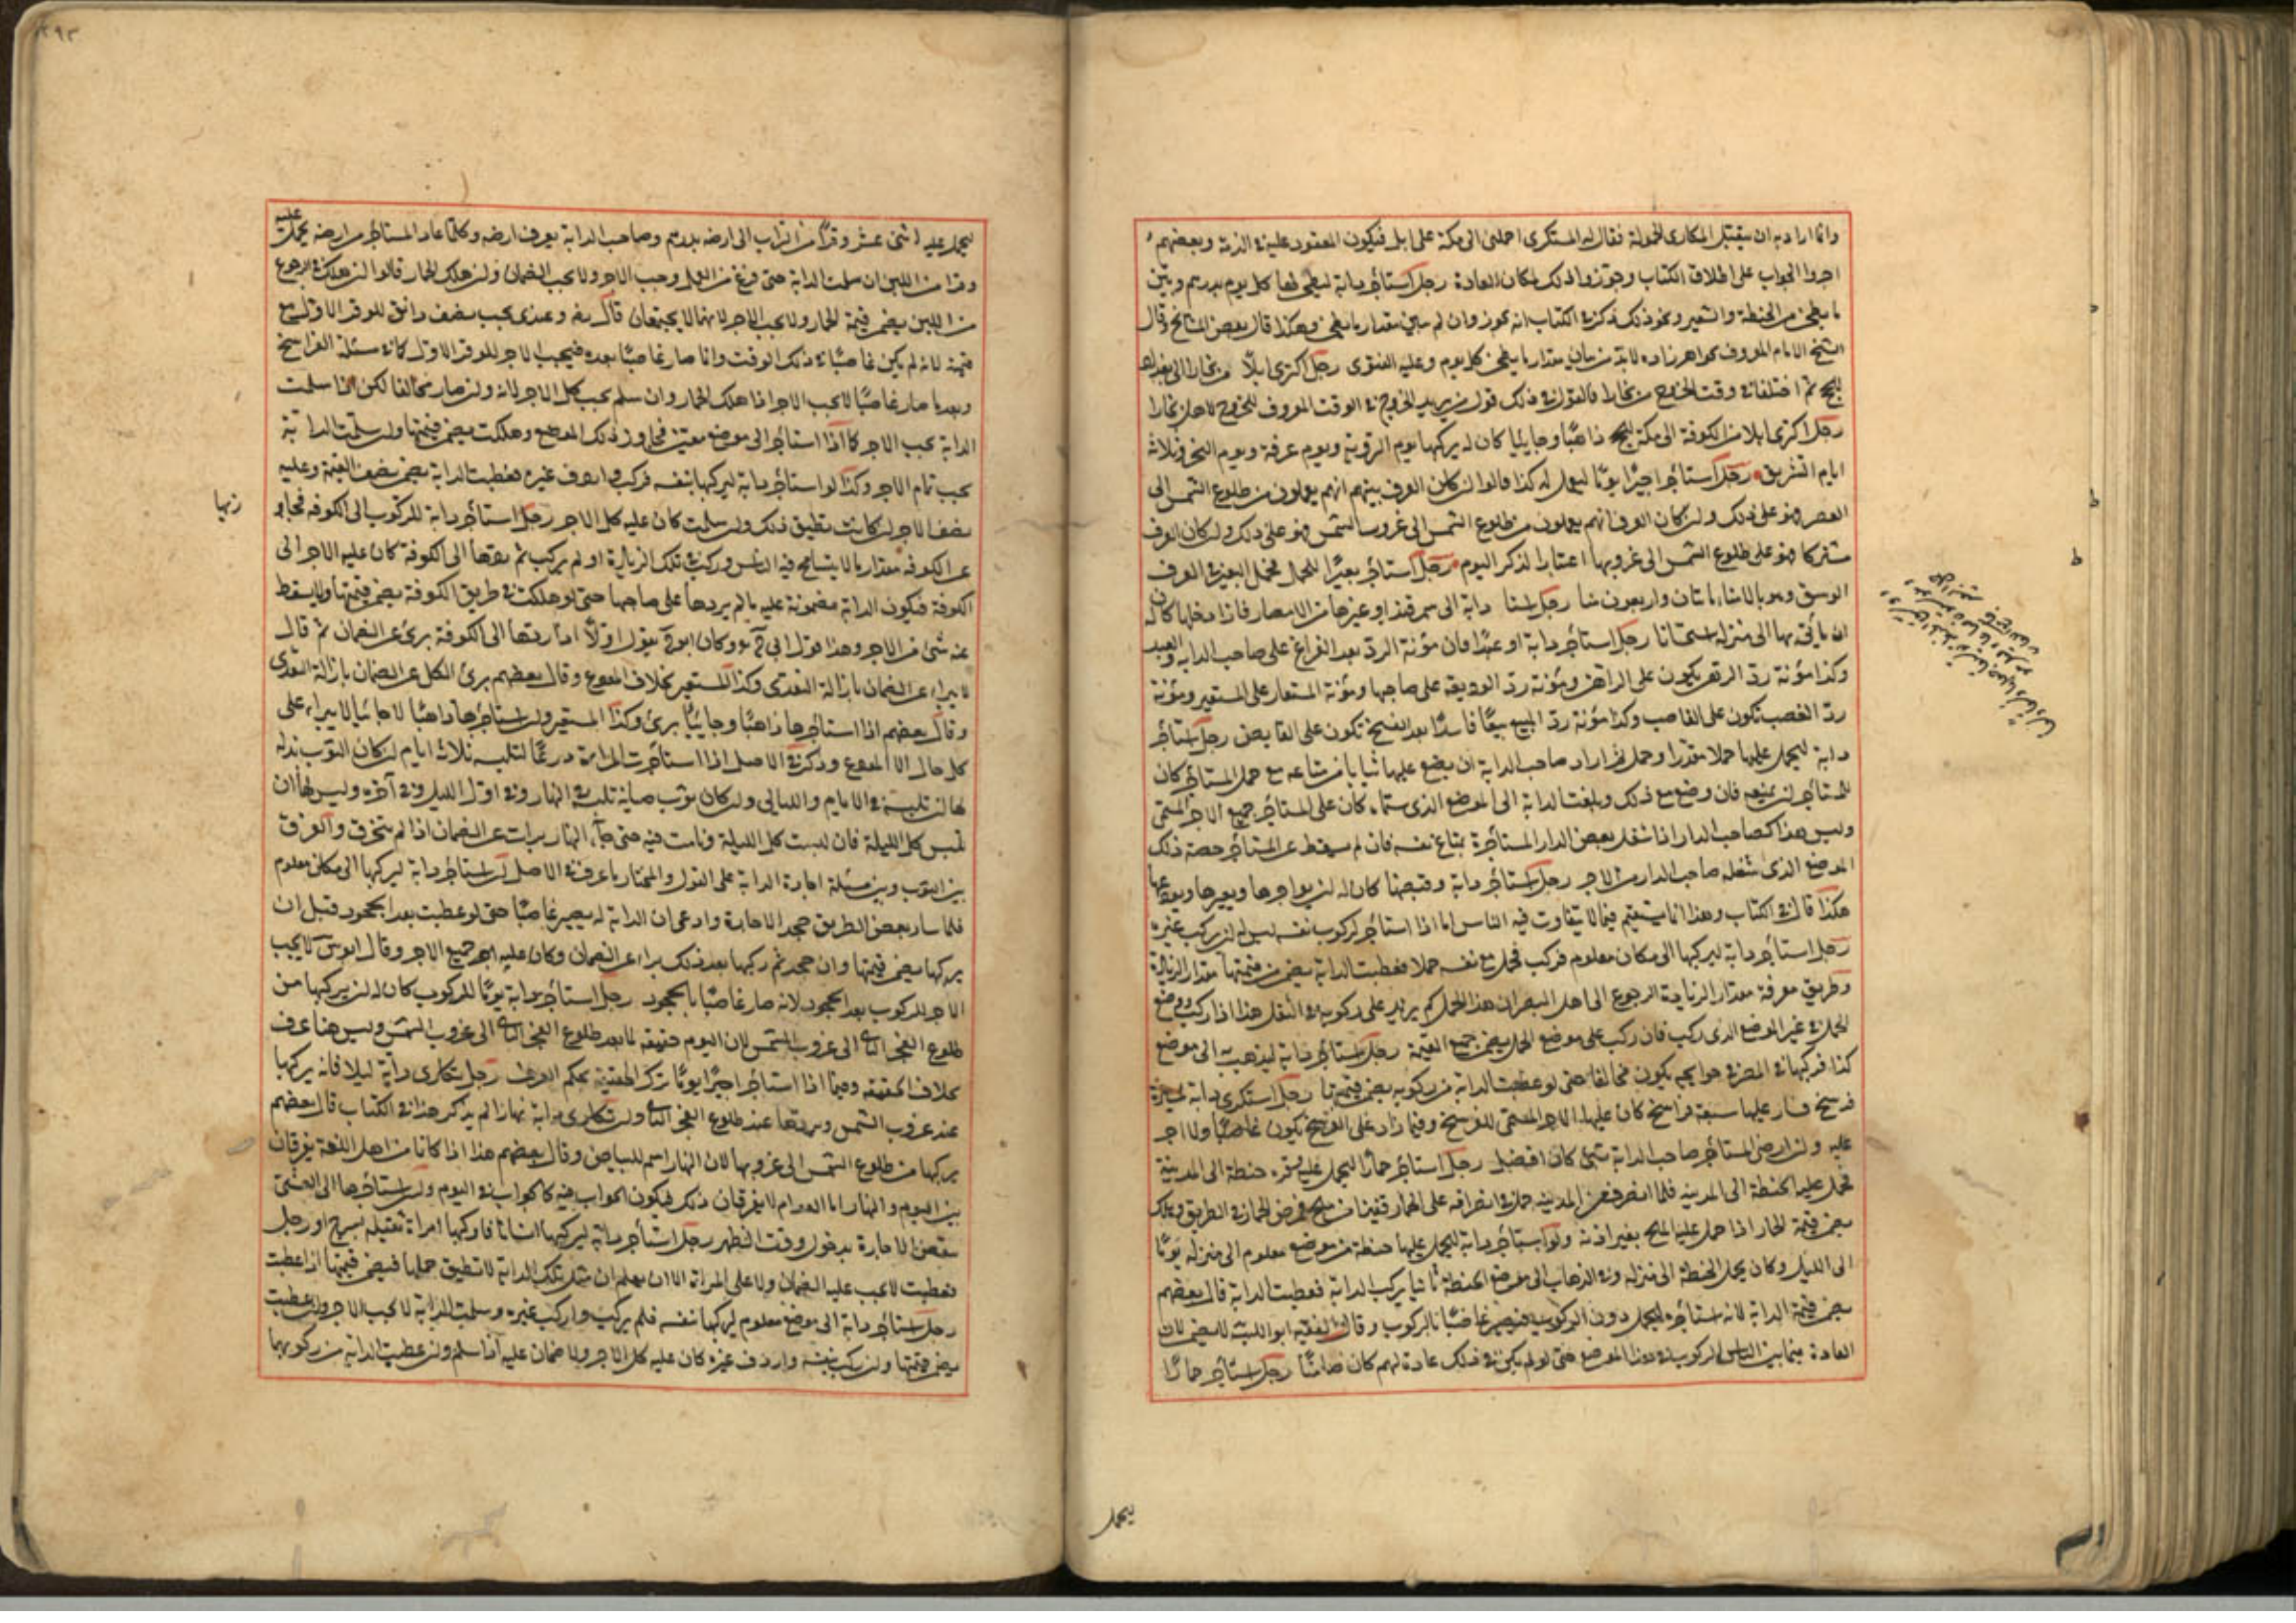 وانما اراد به ان يتقبل المكارى الحمولة فقال له المستكرى احملنى الى مكة على ابل فيكون المعقود عليه في الذمة وبعضهم
اجروا الجواب على اطلاق الكتاب وجوزوا ذلك لمكان العادة رجل استأجر دابة ليطحن لها كل يوم بدرهم وبين
ما يطحن من الحنطة والشعير ونحو ذلك ذكر في الكتاب انه يجوز وان لم يبين مقدار ما يطحن وهكذا قال بعض المشائخ وقال
الشيخ الامام المعروف بخواهرزاده لابد من بيان مقدار ما يطحن كل يوم وعليه الفتوى رجل اكترى ابلًا من بخارا الى بغداد
للحج ثم اختلفا في وقت الخروج من بخارا فالقول في ذلك قول من يريد الخروج في الوقت المعروف للخروج لاهل بخارا
رجل اكترى ابلا من الكوفة الى مكة للحج ذاهبًا وجايئًا كان له يركبها يوم التروية ويوم عرفة ويوم النحر وثلاثة
ايام التشريق رجل استأجر اجيرًا يومًا ليعمل له كذا قالوا ان كان العرف بينهم انهم يعملون من طلوع الشمس الى
العصر فهو على ذلك وان كان العرف انهم يعملون من طلوع الشمس الى غروب الشمس فهو على ذلك وان كان العرف
مشتركا فهو على طلوع الشمس الى غروبها اعتبارا لذكر اليوم رجل استأجر بعيرًا للحمل فحمل البعير في العرف
الوسق وهو بالامناء مائتان واربعون منا رجل دابة الى سمرقند او غيرها من الامصار فاذا دخلها كان له
ان يأتى بها الى منزله استحسانا رجل استأجر دابة او عبدًا فان مؤنة الرد بعد الفراغ على صاحب الدابة والعبد
وكذا مؤنة رد الرهن يكون على الراهن ومؤنة رد الوديعة على صاحبها ومؤنة المستعار على المستعير ومؤنة
رد الغصب تكون على الغاصب وكذا مؤنة رد المبيع بيعًا فاسدًا بعد الفسخ تكون على القابض رجل استأجر
دابة ليحمل عليها حملا مقدرا وحمل فاراد صاحب الدابة ان يضع عليها شيأ من متاعه مع حمل المستأجر كان
للمستأجر ان يمنعه فان وضع مع ذلك وبلغت الدابة الى الموضع الذى سماه كان على المستأجر جميع الاجر المسمى
وليس هذا كصاحب الدار اذا شغل بعض الدار المستأجرة بمتاع نفسه فان لم يسقط عن المستأجر حصة ذلك
الموضع الذى شغله صاحب الدار من الاجر رجل استأجر دابة وقبضها كان له ان يواجرها ويعيرها ويودعها
هكذا قال في الكتاب وهذا انما يستقيم فيما لا يتفاوت فيه الناس اما اذا استأجر لركوب نفسه ليس له ان يركب غيره
رجل استأجر دابة ليركبها الى مكان معلوم فركب فحمل مع نفسه حملا فعطبت الدابة يضمن من قيمتها مقدار الزيادة
وطريق معرفة مقدار الزيادة الرجوع الى اهل البصر ان هذا الحمل كم يزيد على ركوبه في الثقل هذا اذا ركب ووضع
الحمل في غير الموضع الذى ركب فان ركب على موضع الحمل يضمن جميع القيمة رجل استأجر دابة ليذهب به الى موضع
كذا فركبها في المصر في حوايجه يكون مخالفا حتى لو عطبت الدابة من ركوبه يضمن قيمتها رجل استكرى دابة
فرسخ فسار عليها سبعة فراسخ كان عليها الاجر المسمى للفرسخ وفيما زاد على الفرسخ يكون غاصبًا ولا اجر
عليه وان ارضى المستأجر صاحب الدابة بشئ كان افضل رجل استأجر حمارًا ليحمل عليه حنطة الى المدينة
فحمل عليه الحنطة الى المدينة فلما انصرف من المدينة حمل في انصرافه على الحمار قفيزا من ملح فمرض الحمار في الطريق وهلك
يضمن قيمة الحمار اذا حمل عليه الملح بغير اذنه ولو استأجر دابة ليحمل عليها حنطة من موضع معلوم الى منزله يومًا
الى الليل وكان يحمل الحنطة الى منزله وفي الذهاب الى موضع الحنطة ثانيا يركب الدابة فعطبت الدابة قال بعضهم
يضمن قيمة الدابة لانه استأجره للحمل دون الركوب فيصير غاصبًا بالركوب وقال الفقيه ابو الليث لا يضمن لان
العادة فيما بين الناس الركوب في هذا الموضع حتى لو لم يكن في ذلك عادة لهم كان ضامنًا رجل استأجر حمارًا
ليحمل
٢٩٣
ليحمل عليه اثنى عشر وقرًا من التراب الى ارضه بدرهم وصاحب الدابة يعرف ارضه وكلما عاد المستأجر من ارضه يحمل عليه
وقرا من اللبن ان سلمت الدابة حتى فرغ من العمل وجب الاجر ولا يجب الضمان وان هلك الحمار قالوا ان هلك في الرجوع
من اللبن يضمن قيمة الحمار ولا يجب الاجر لانهما لا يجتمعان قال رضه وعندى يجب نصف دانق للوقر الاول مع
قيمته لانه لم يكن غاصبًا في ذلك الوقت وانما صار غاصبًا بعده فيجب الاجر للوقر الاول كما في مسئلة الفراسخ
وبعد ما صار غاصبًا لا يجب الاجر اذا هلك الحمار وان سلم يجب كل الاجر لانه وان صار مخالفا لكن اذا سلمت
الدابة يجب الاجر كما اذا استأجر الى موضع معين فجاوز ذلك الموضع وهلكت يضمن قيمتها وان سلمت الدابة
يجب تمام الاجر وكذا لو استأجر دابة ليركبها بنفسه فركب واردف غيره فعطبت الدابة يضمن نصف القيمة وعليه
نصف الاجر ان كانت تطيق ذلك وان سلمت كان عليه كل الاجر رجل استأجر دابة للركوب الى الكوفة فجاوز
زبها
عن الكوفة مقدار ما لا يتسامح فيه الناس وركب في تلك الزيادة او لم يركب ثم ردها الى الكوفة كان عليه الاجر الى
الكوفة فيكون الدابة مضمونة عليه ما لم يردها على صاحبها حتى لو هلكت في طريق الكوفة يضمن قيمتها ولا يسقط
عنه شئ من الاجر وهذا قول ابى وكان ابو يقول اولًا اذا ردها الى الكوفة برئ عن الضمان ثم قال
لا يبراء عن الضمان بازالة التعدى وكذا المستعير بخلاف المودع وقال بعضهم برئ الكل عن الضمان بازالة التعدى
وقال بعضهم اذا استأجرها ذاهبًا وجايئًا برئ وكذا المستعير وان استأجرها ذاهبًا لا جائيا لا يبراء على
كل حال الا المودع وذكر في الاصل اذا استأجرت المراة درعًا لتلبسه ثلاثة ايام ان كان الثوب بذله
لها ان تلبسه في الايام والليالى وان كان ثوب صيانة تلبسه في النهار وفي اول الليل وفي آخره وليس لها ان
تلبس كل الليلة فان لبست كل الليلة ونامت فيه حتى جاء النهار برات عن الضمان اذا لم يتخرق والفرق
بين الثوب وبين مسئلة اجارة الدابة على القول والمختار ما عرف في الاصل ان استأجر دابة ليركبها الى مكان معلوم
فلما سار بعض الطريق جحد الاجارة وادعى ان الدابة له يصير غاصبًا حتى لو عطبت بعد الجحود قبل ان
يركبها يضمن قيمتها وان جحد ثم ركبها بعد ذلك براء عن الضمان وكان عليه جميع الاجر وقال ابو س لا يجب
الاجر للركوب بعد الجحود لانه صار غاصبًا بالجحود رجل استأجر دابة يومًا للركوب كان له ان يركبها من
طلوع الفجر الثانى الى غروب الشمس لان اليوم حقيقة لما بعد طلوع الفجر الثانى الى غروب الشمس وليس هنا عرف
بخلاف الحقيقة وفيما اذا استأجر اجيرًا يومًا ترك الحقيقة بحكم العرف رجل تكارى دابة ليلا فانه يركبها
عند غروب الشمس ويردها عند طلوع الفجر الثانى وان تكارى دابة نهارا لم يذكر هذا في الكتاب قال بعضهم
يركبها من طلوع الشمس الى غروبها لان النهار اسم للبياض وقال بعضهم هذا اذا كانا من اهل اللغة يفرقان
بين اليوم والنهار اما العوام لا يفرقان ذلك فيكون الجواب فيه كالجواب في اليوم وان استأجرها الى العشى
تنتقض الاجارة بدخول وقت الظهر رجل استأجر دابة ليركبها انسانا فاركبها امراة ثقيلة بسرج او رحل
فعطبت لا يجب عليه الضمان ولا على المراة الا ان يعلم ان مثل تلك الدابة لا تطيق حملها فيضمن قيمتها اذا عطبت
رجل استأجر دابة الى موضع معلوم ليركبها نفسه فلم يركب واركب غيره وسلمت الدابة لا يجب الاجر وان عطبت
يضمن قيمتها وان ركب بنفسه واردف غيره كان عليه كل الاجر ولا ضمان عليه اذا سلم وان عطبت الدابة من ركوبهما